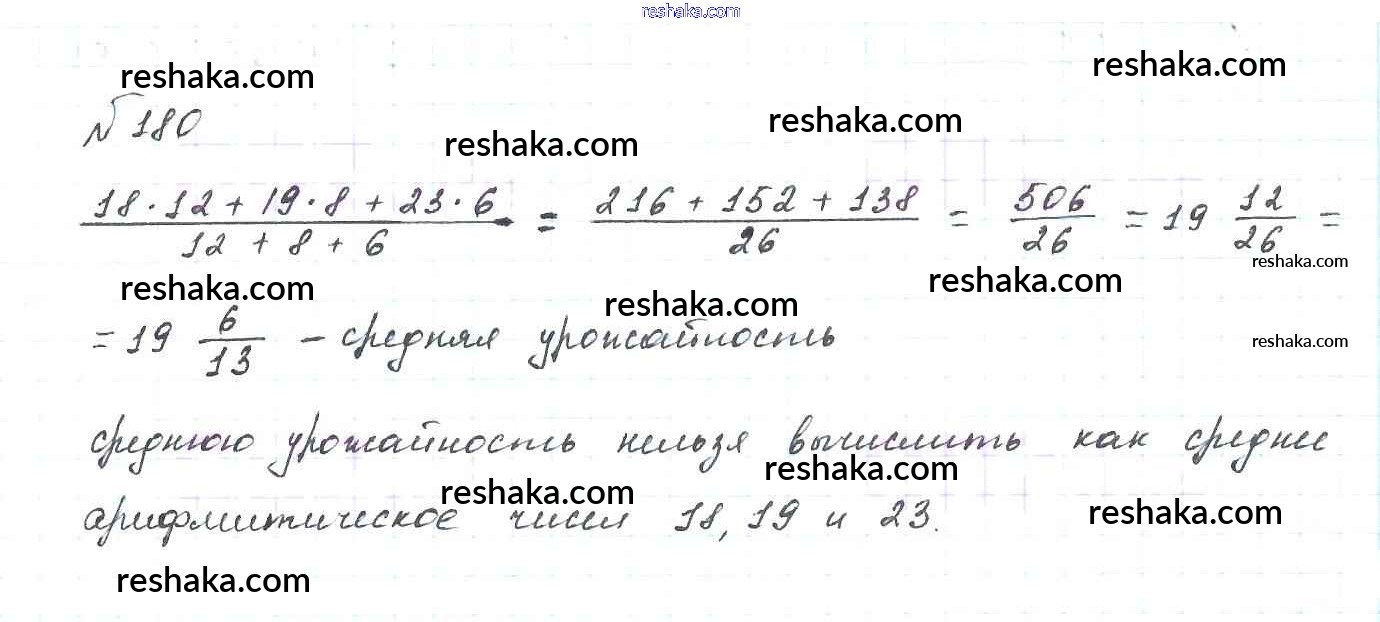 reshaka.com
reshaka.com
reshaka.com
№ 180
reshaka.com
reshaka.com
(18·12 + 19·8 + 23·6)/(12 + 8 + 6) = (216 + 152 + 138)/26 = 506/26 = 19 12/26 =
reshaka.com
reshaka.com
reshaka.com
reshaka.com
= 19 6/13 – средняя урожайность
reshaka.com
среднюю урожайность нельзя вычислить как среднее
reshaka.com
reshaka.com
арифметическое чисел 18, 19 и 23.
reshaka.com
reshaka.com